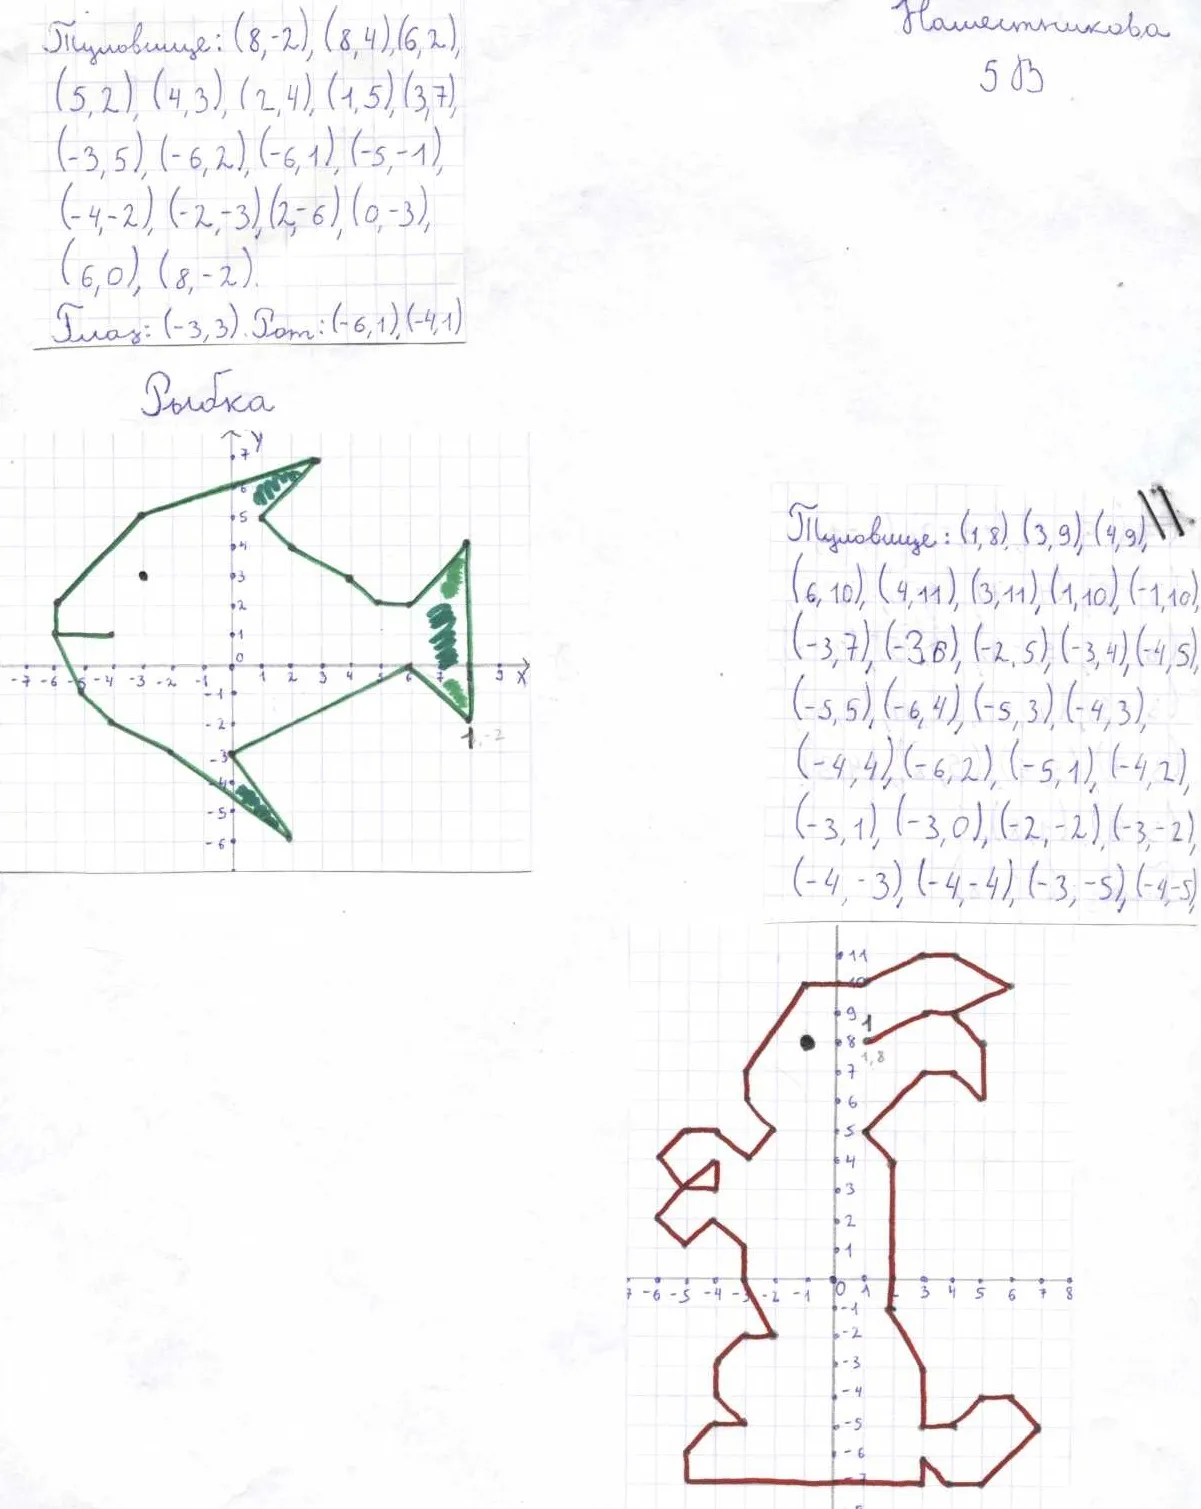 Туловище: (8,-2), (8,4),(6,2),
(5,2), (4,3), (2,4), (1,5) (3,7),
(-3,5), (-6,2), (-6,1), (-5,-1),
(-4,-2), (-2,-3),(2,-6), (0,-3),
(6,0), (8,-2).
Глаз: (-3,3). Рот: (-6,1),(-4,1)
Наместникова
5В
Рыбка
Y
7
6
5
4
3
2
1
0
-7 -6 -5 -4 -3 -2 -1 1 2 3 4 5 6 7 9 X
-1
-2
-3
-4
-5
-6
1,-2
Туловище: (1,8), (3,9), (4,9),
(6,10), (4,11), (3,11), (1,10), (-1,10),
(-3,7), (-3,6), (-2,5), (-3,4),(-4,5),
(-5,5), (-6,4), (-5,3), (-4,3),
(-4,4), (-6,2), (-5,1), (-4,2),
(-3,1), (-3,0), (-2,-2), (-3,-2),
(-4,-3), (-4,-4), (-3,-5), (-4,-5),
11
10
9
1
8
1,8
7
6
5
4
3
2
1
7 -6 -5 -4 -3 -2 -1 0 1 2 3 4 5 6 7 8
-1
-2
-3
-4
-5
-6
-7